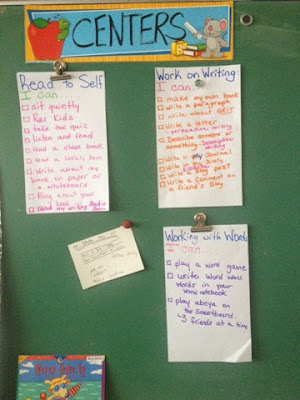 CENTERS
Read to Self
I can....
sit quietly
Raz Kids
take the quiz
listen and read
Read a class book
Read a library book
Write about my
book on paper or
a whiteboard
Blog about your
book
read my writing
Work on Writing:
I can...
make my own book
write a paragraph
write about
write a letter
persuasive writing
Describe someone or
something-
Write in my Journal
Write in my Diary
Write a Blog post
Write a Comment on
a friend's Blog
Working with Words
I can....
play a word game
write Word Wall
Words in your
word notebook
play abcya on
the Smartboard
3 friends at a time